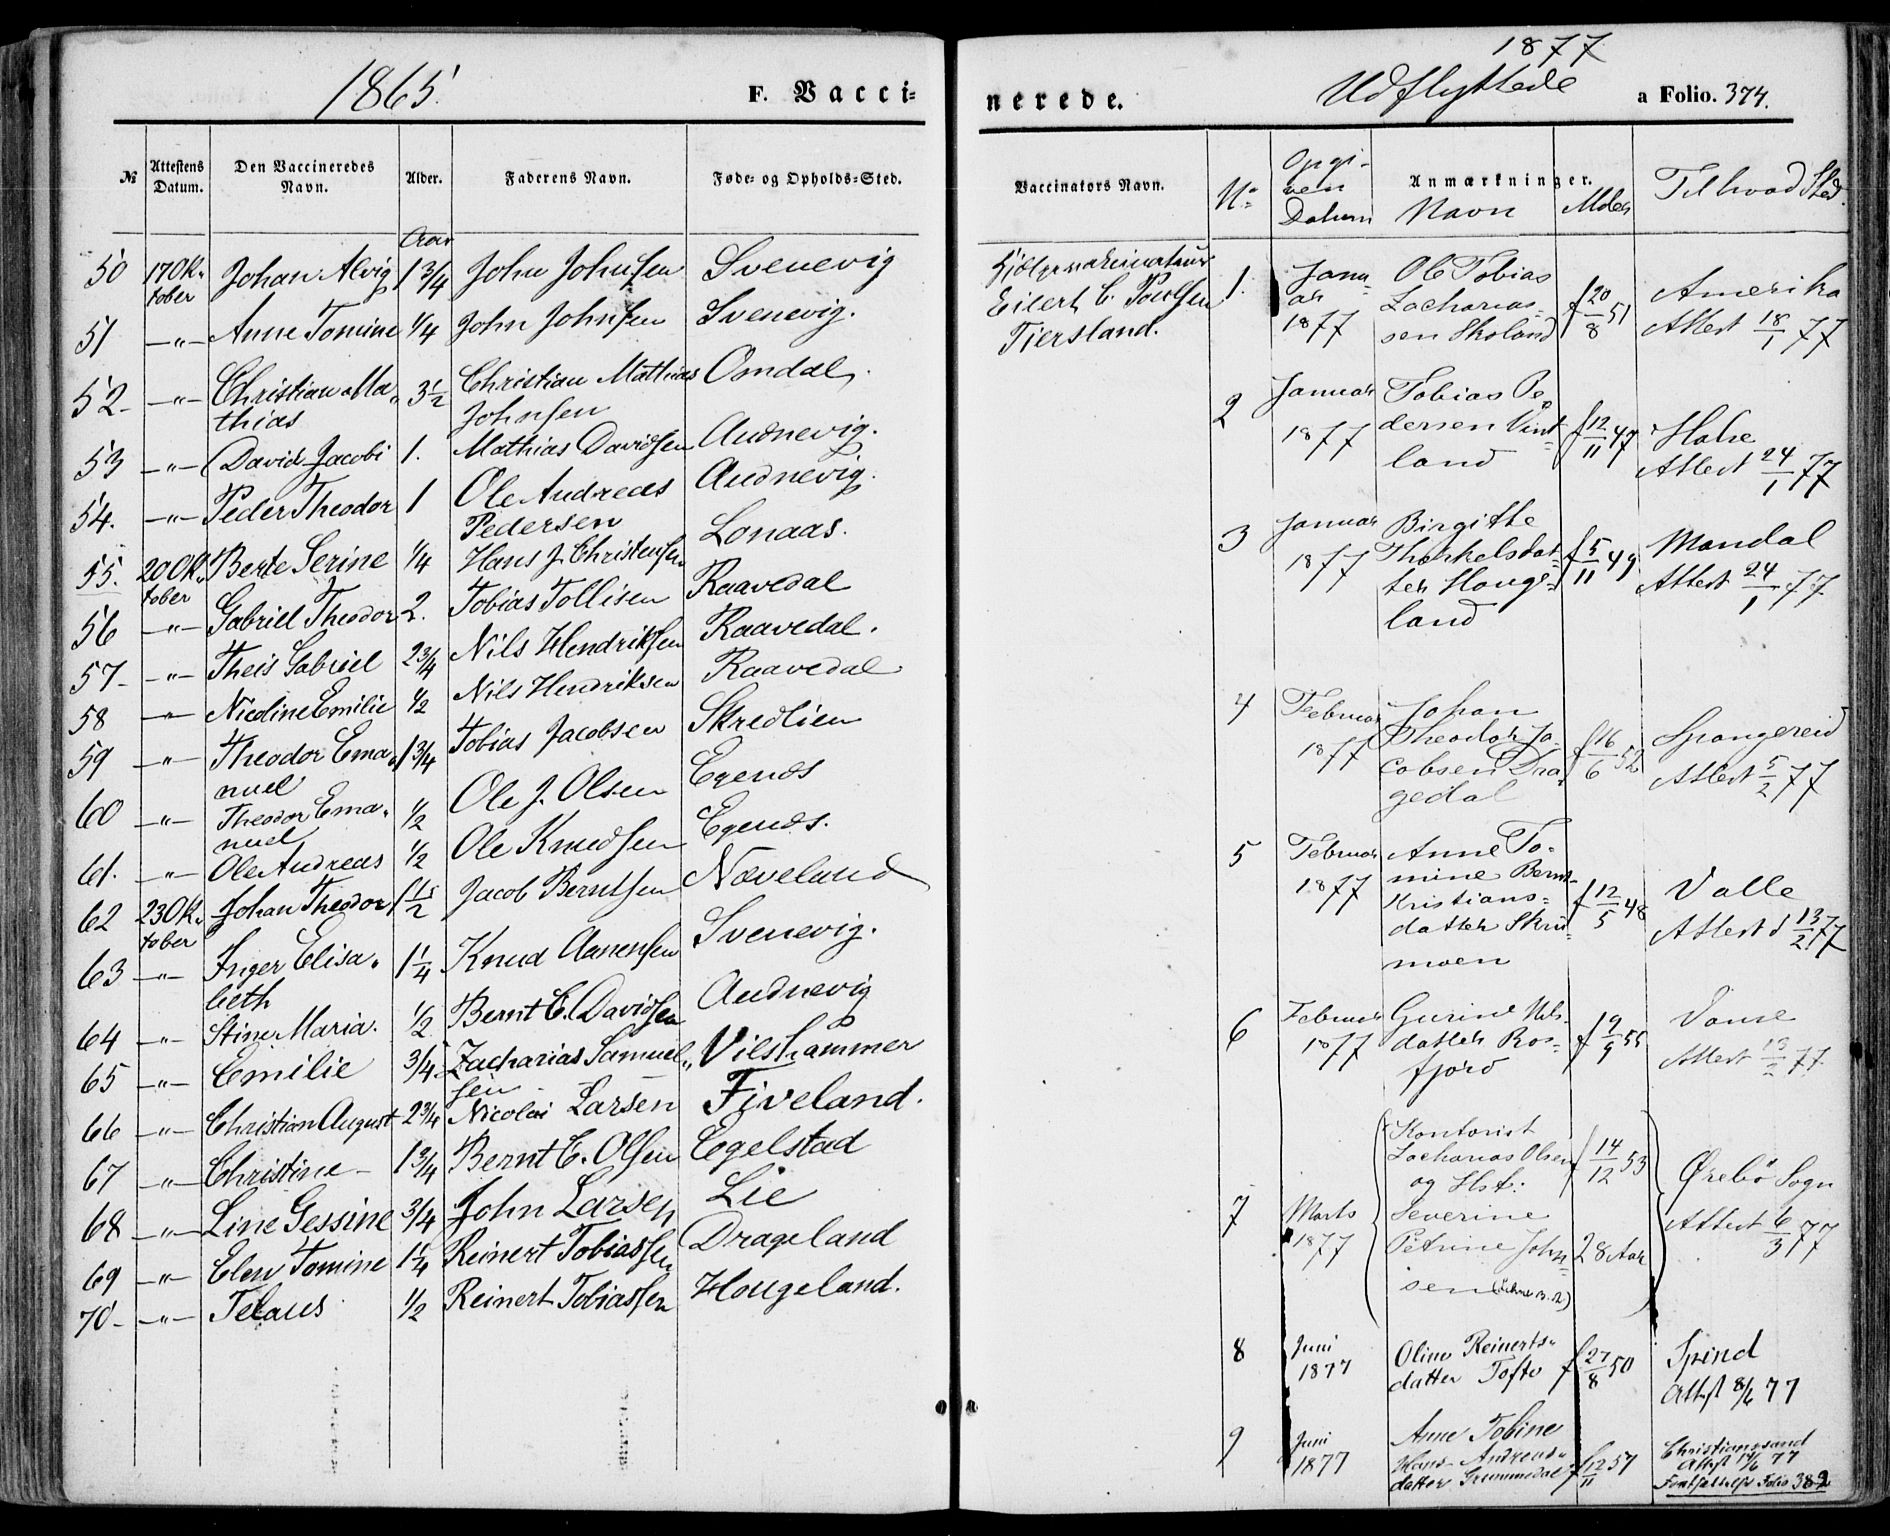 1865.
F. Vacci-
№ Attestens Datum. Den Vaccineredes Navn. Alder. Faderens Navn. Føde- og Opholds-Sted.
50 17 Ok- Johan Alvig 1 3/4 John Johnsen Svenevig
tober
51 —"— Anne Tomine 1/4 John Johnsen Svenevig.
52 —"— Christian Ma- 3 1/2 Christian Mathias Omdal.
thias Johnsen
53 —"— David Jacobi 1. Mathias Davidsen Audnevig.
54. —"— Peder Theodor 1 Ole Andreas Audnevig.
Pedersen
55. 20 Ok- Berte Serine 1/4 Hans J. Christensen Lonaas.
tober
56 —"— Gabriel Theodor 2. Tobias Tollisen Raavedal
57 —"— Theis Gabriel 2 3/4 Nils Hendriksen Raavedal.
58 —"— Nicoline Emilie 1/2 Nils Hendriksen Raavedal
59 —"— Theodor Ema- 1 3/4 Tobias Jacobsen Skredlien
nuel
60 —"— Theodor Ema- 1/2 Ole J. Olsen Egenes
nuel
61. —"— Ole Andreas 1/2 Ole Knudsen Egenes.
62 23 Ok- Johan Theodor Jacob Berntsen Næveland
tober
63 —"— Inger Elisa- 1 1/4 Knud Aanensen Svenevig.
beth
64 —"— Stine Maria. 1/2 Bernt E. Davidsen Audnevig
65 —"— Emilie 3/4 Zacharias Samuel- Vilshammer
sen
66 —"— Christian August 2 3/4 Nicolai Larsen Fiveland.
67 —"— Christine 1 3/4 Bernt E. Olsen Egelstad
68 —"— Line Gessine 3/4 John Larsen Lie
69 —"— Elen Tomine 1 1/4 Reinert Tobiassen Drageland
70 —"— Telaus 1/2 Reinert Tobiassen Hougeland.
1877
nerede. Udflyttede a Folio. 374.
Vaccinators Navn. Anmærkninger.
No Opgi-
ven
Datum Navn Alder Til hvad Sted.
Hjælpevakcinateur
Eilert C. Poulsen
Tjersland.
1. Janu- Ole Tobias Amerika
ar Zacharias- f 20/8 51
1877 sen Skoland Attest 18/1 77
2 Januar Tobias Pe-
1877 dersen Vint- f 12/11 47 Halse
land Attest 24/1 77
3 Januar Birgitte Mandal
1877 Thorkelsdat- f 5/11 49 Attest 24/1 77
ter Houge-
land
4 Februar Johan Spangereid
1877 Theodor Ja- f 16/6 52
cobsen Dra- Attest 5/2 77
gedal
5 Februar Anne To-
1877 mine Bernt- Valle
Kristians- f 12/5 48
datter Skru- Attest d 13/2 77
moen
6 Februar Gurine Nils- Vanse
1877 datter Ros- f 19/9 55 Attest 13/2 77.
fjord
Kontorist
Zacharias Olsen f 14/12 53
og Hst: Ørebö Sogn
7 Marts Severine Attest 6/3 77
1877 Petrine John- 28 Aar
sen
8 Juni Oline Reinerts- Spind
1877 datter Tofte f 27/8 50
Attest 8/6 77
9 Juni Anne Tobine Christianssand
1877 Hans Andreas- f 12/11 57
datter Attest 77
Fortsættelse Folio 382